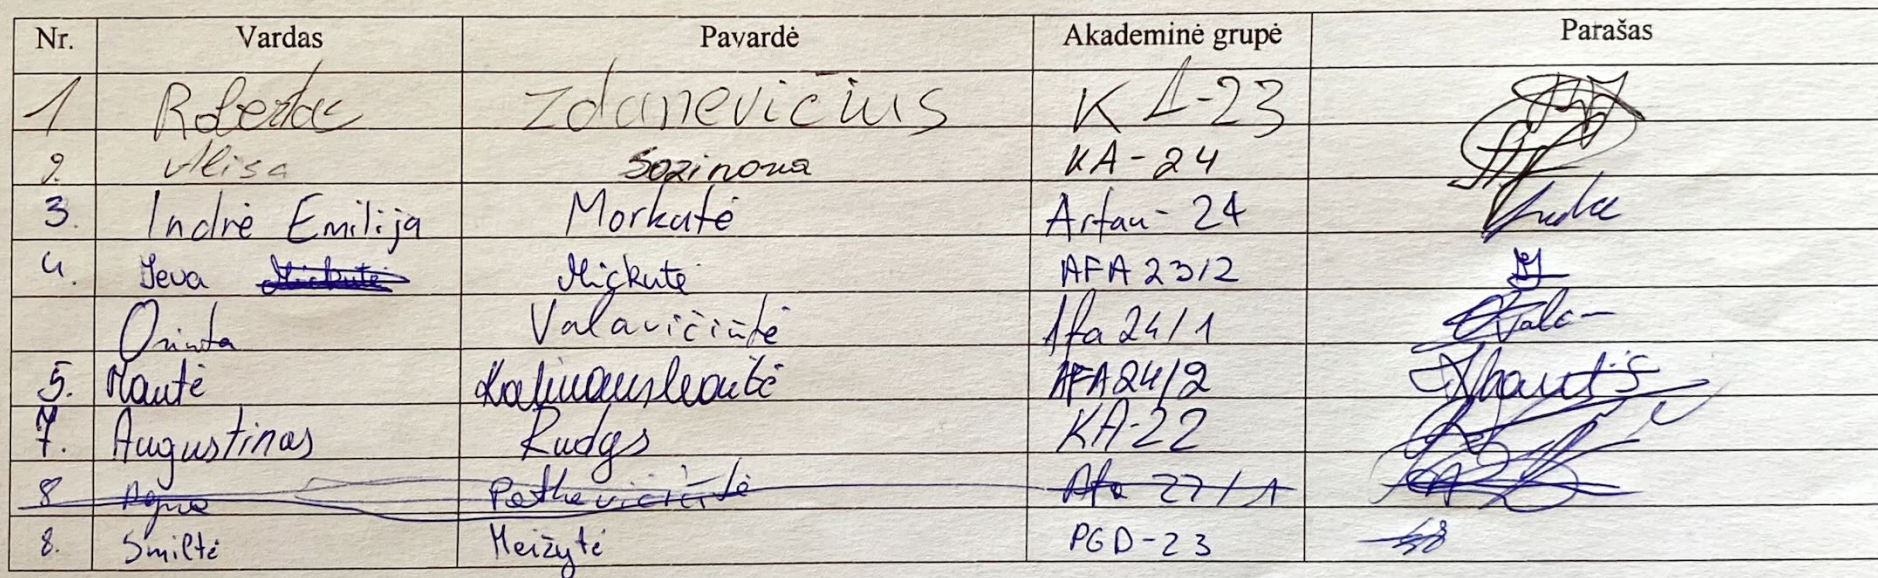 Nr. Vardas Pavardė Akademinė grupė Parašas
1 Robertas Zdanevičius KA-23
2. Alisa Sozinova KA-24
3. Indrė Emilija Morkutė Artau-24
4. Ieva Mickutė Mickutė AFA 23/2
Orinta Valavičiūtė Afa 24/1
5. Mantė Kalinauskaitė AFA24/2
7. Augustinas Rudys KA-22
8 Agnė Petkevičiūtė Afa 22/1
8. Smiltė Meižytė PGD-23